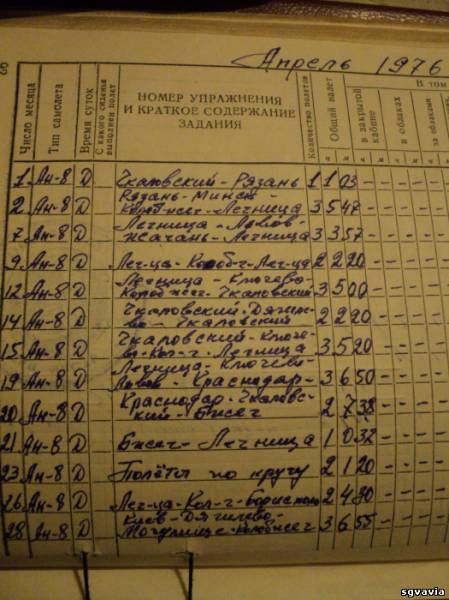 Апрель 1976
Число месяца
Тип самолета
Время суток
С какого сиденья выполнял полет
НОМЕР УПРАЖНЕНИЯ
И КРАТКОЕ СОДЕРЖАНИЕ
ЗАДАНИЯ
Количество полетов
Общий налет
В том
в закрытой кабине
в облаках
за облаками
1 Ан-8 Д Чкаловский-Рязань 1 1 03 - - - - - -
Рязань-Минск-
2 Ан-8 Д Легница 3 5 47 - - - - - -
Легница-Львов-
7 Ан-8 Д Жагань-Легница 3 3 57 - - - - - -
9 Ан-8 Д Лег-ца 2 2 20 - - - - - -
Легница-Ключево-
12 Ан-8 Д Чкаловский 3 5 00 - - - - - -
Чкаловский-Дягиле-
14 Ан-8 Д во-Чкаловский 2 2 20 - - - - - -
Чкаловский-Ключе-
15 Ан-8 Д во-Кол-г-Легница 3 5 20 - - - - - -
Легница-Ключево-
19 Ан-8 Д Львов-Краснодар- 3 6 50 - - - - - -
Краснодар-Чкаловс-
20 Ан-8 Д кий-Бжег 2 7 38 - - - - - -
21 Ан-8 Д Бжег-Легница 1 0 32 - - - - - -
23 Ан-8 Д Полёты по кругу 2 1 20 - - - - - -
26 Ан-8 Д Лег-ца-Кол-г-Борисполь 2 4 30 - - - - - -
Киев-Дягилево-
28 Ан-8 Д 3 6 55 - - - - - -
sgvavia